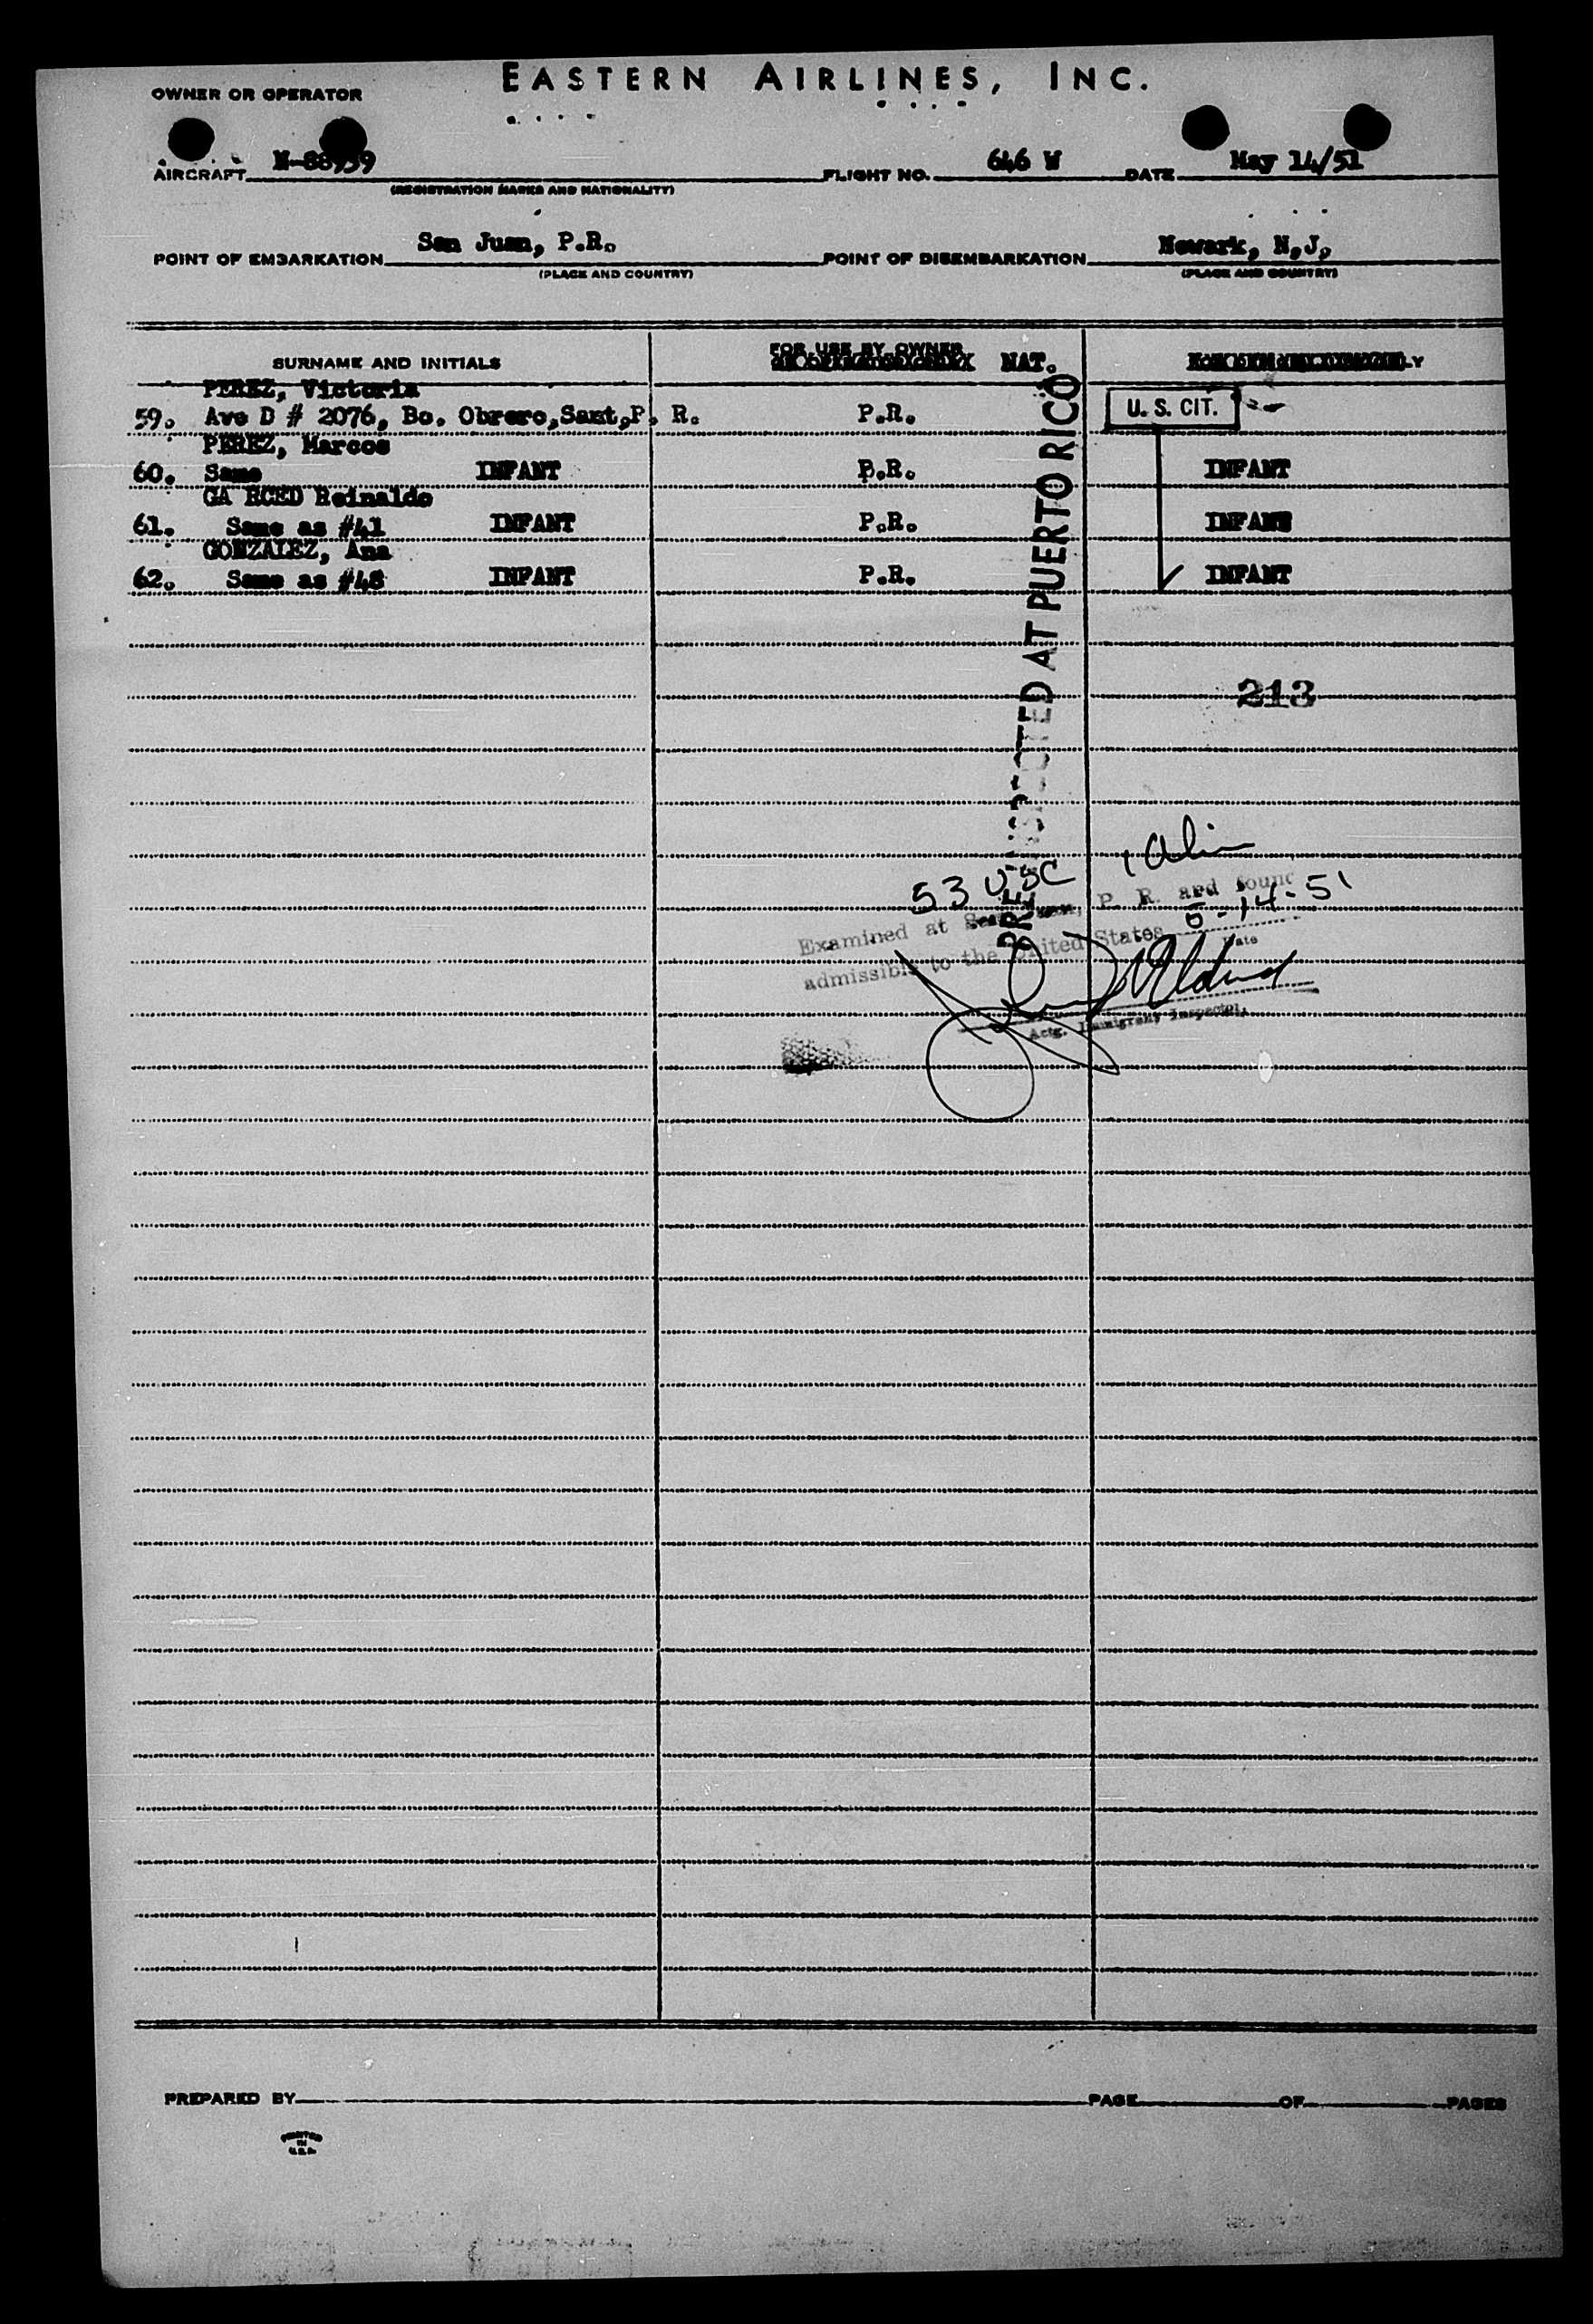 EASTERN AIRLINES, INC.
OWNER OR OPERATOR
AIRCRAFT N-88939 FLIGHT NO. 646 W DATE May 14/51
(REGISTRATION MARKS AND NATIONALITY)
POINT OF EMBARKATION San Juan, P.R. POINT OF DISEMBARKATION Newark, N.J.
(PLACE AND COUNTRY) (PLACE AND COUNTRY)
SURNAME AND INITIALS FOR USE BY OWNER NAT.
PEREZ, Victoria
59. Ave D # 2076, Bo. Obrero,Sant,P. R. P.R. U. S. CIT.
PEREZ, Marcos
60. Same INFANT P.R. INFANT
GA RCED Reinaldo
61. Same as #41 INFANT P.R. INFANT
GONZALEZ, Ana
62. Same as #48 INFANT P.R. INFANT
PRE-INSPECTED AT PUERTO RICO
213
53 USC 1 Alien
Examined at San Juan, P. R. and found
admissible to the United States 5-14-51
Date
Actg. Immigrant Inspector.
PREPARED BY PAGE OF PAGES
PRINTED
IN
U.S.A.